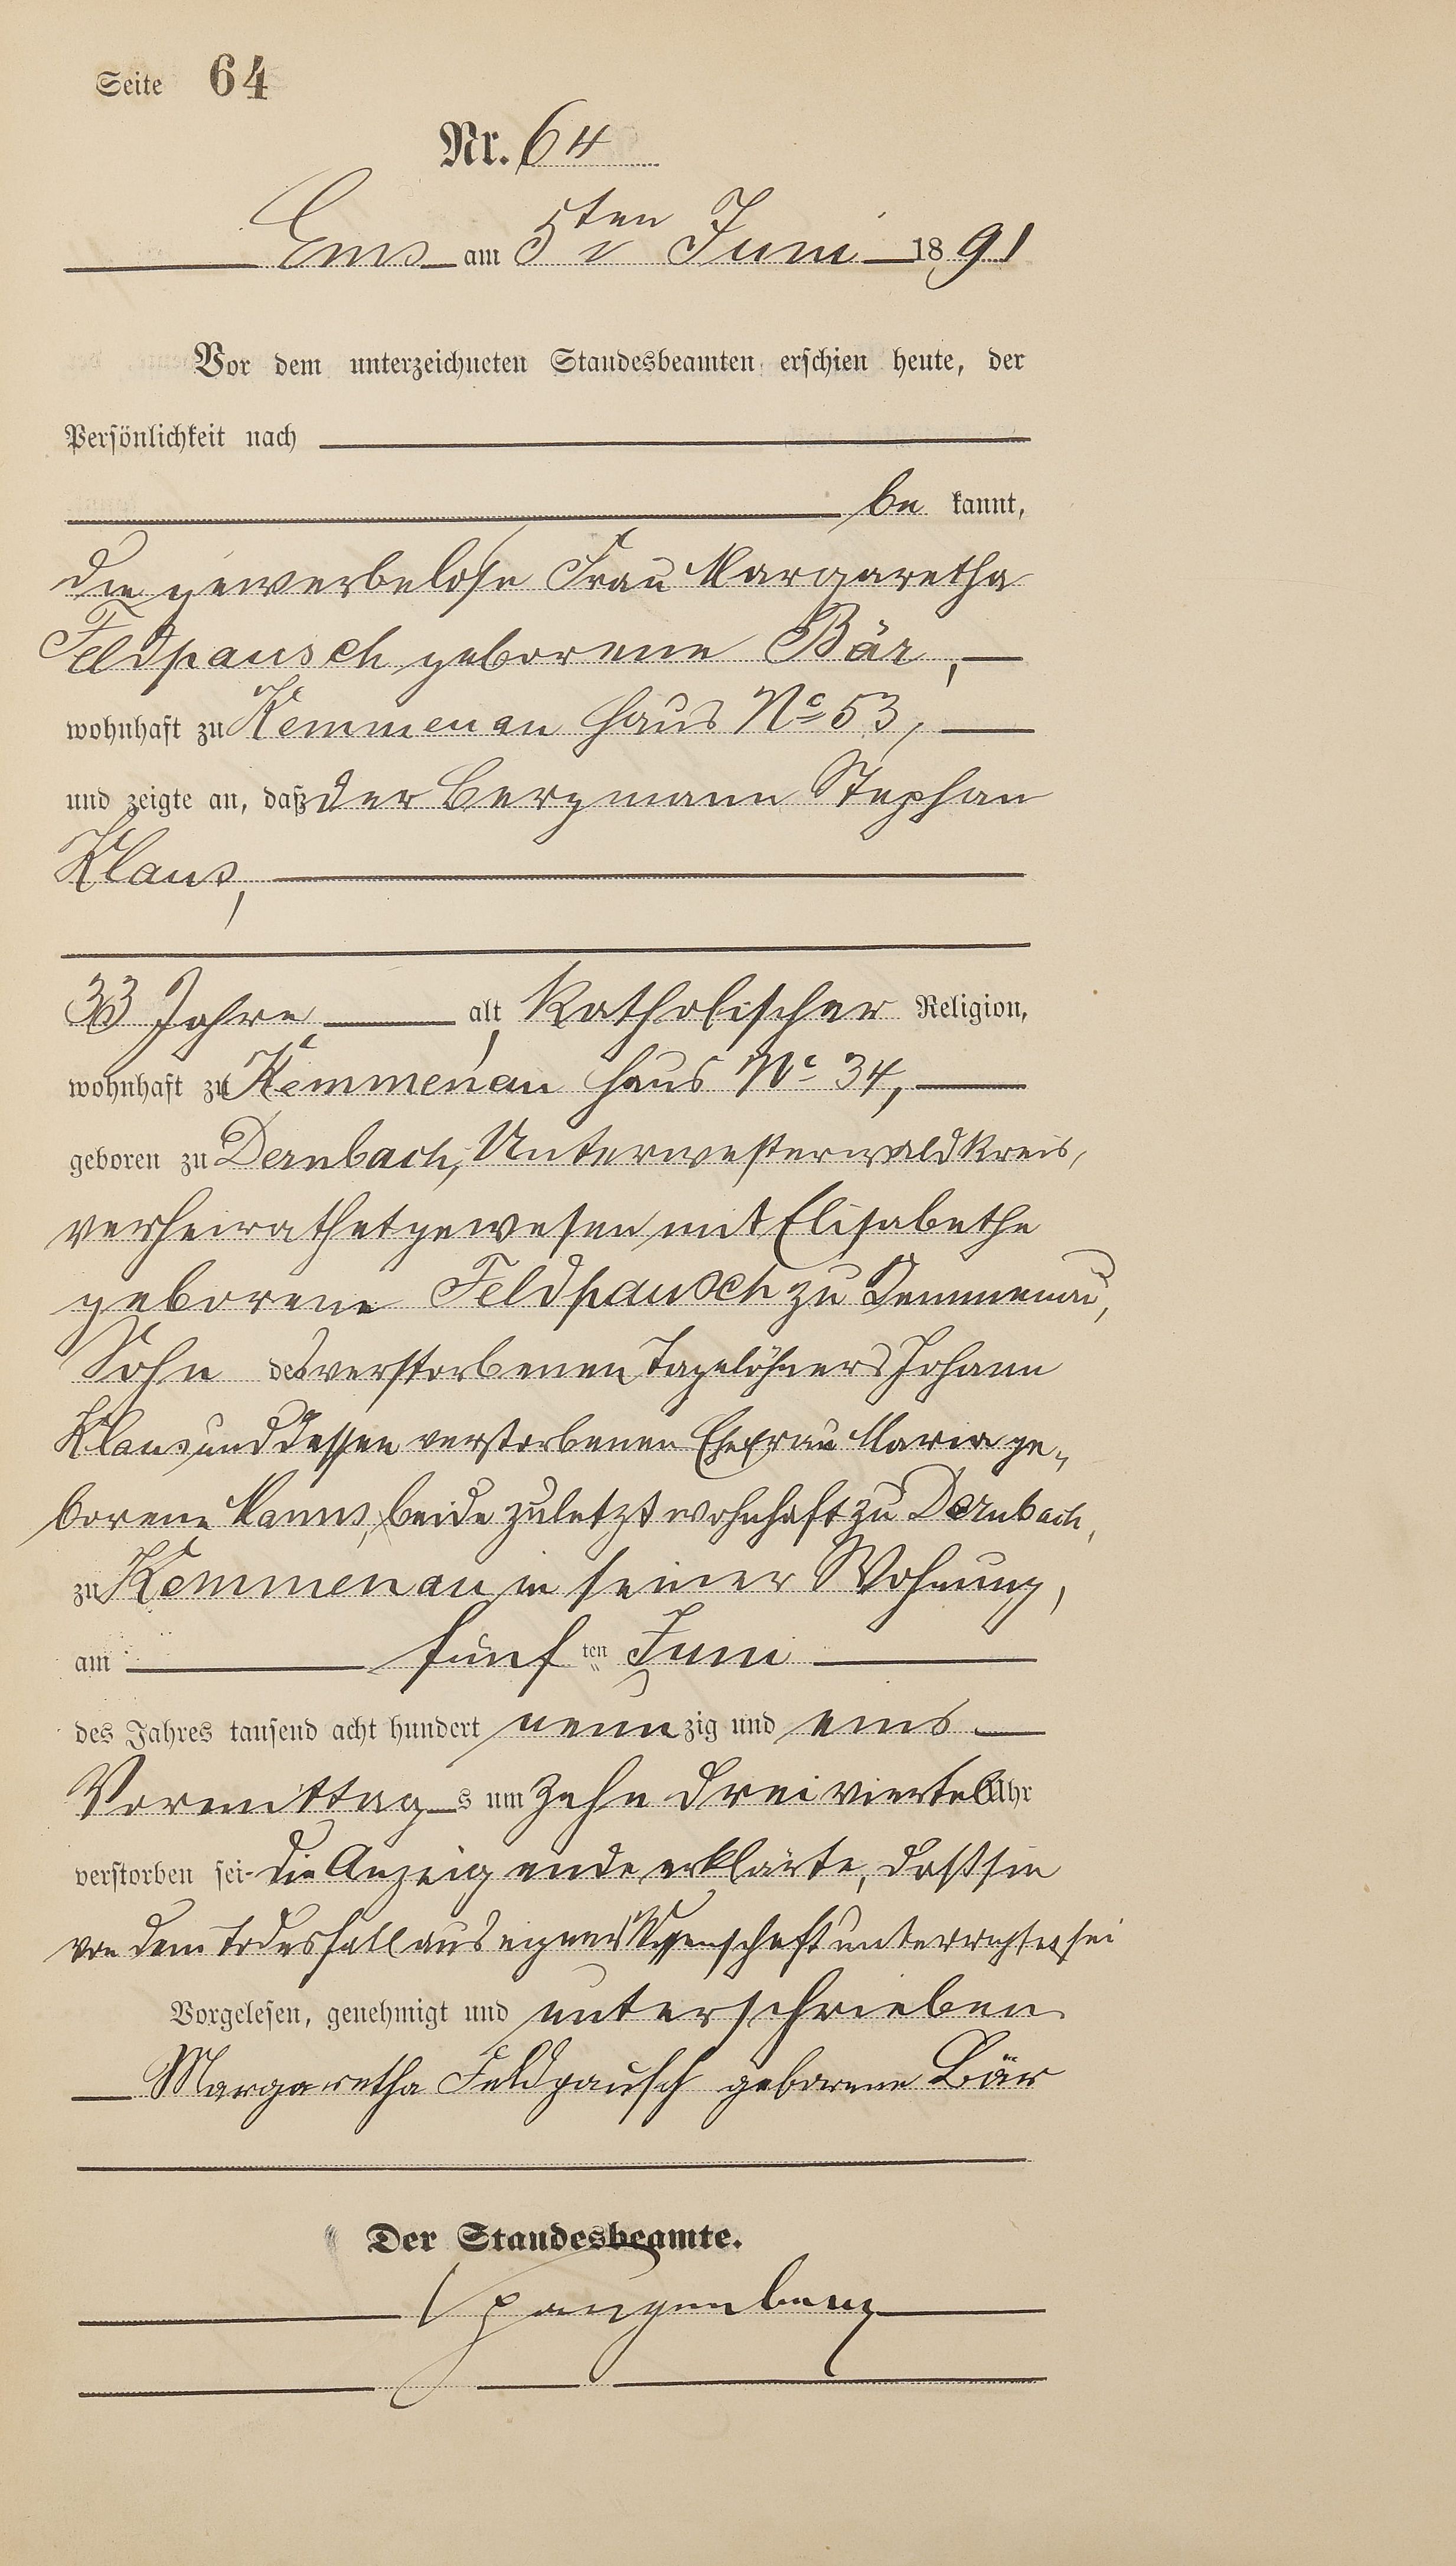 Seite 64
Nr. 64
Ems am 5ten Juni 1891
Vor dem unterzeichneten Standesbeamten erschien heute, der
Persönlichkeit nach
be kannt,
die gewerbelose Frau Margaretha
Feldpausch geborene Bär,
wohnhaft zu Kemmenau Haus No 53,
und zeigte an, daß der Bergmann Stephan
Klaus,
33 Jahre alt, katholischer Religion,
wohnhaft zu Kemmenau Haus No 34,
geboren zu Dernbach, Unterwesterwaldkreis,
verheirathet gewesen mit Elisabethe
geborene Feldpausch zu Kemmenau,
Sohn des verstorbenen Tagelöhners Johann
Klaus und dessen verstorbenen Ehefrau Maria ge-
borene beide zuletzt wohnhaft zu Dernbach,
zu Kemmenau in seiner Wohnung,
am fünf ten Juni
des Jahres tausend acht hundert neun zig und eins
Vormittag s um zehn dreiviertel Uhr
verstorben sei. Die Anzeigende erklärte, daß sie
von dem Todesfall aus eigener Wissenschaft unterrichtet sei
Vorgelesen, genehmigt und unterschrieben
Margaretha Feldpausch geborene Bär
Der Standesbeamte.
Spangenberg